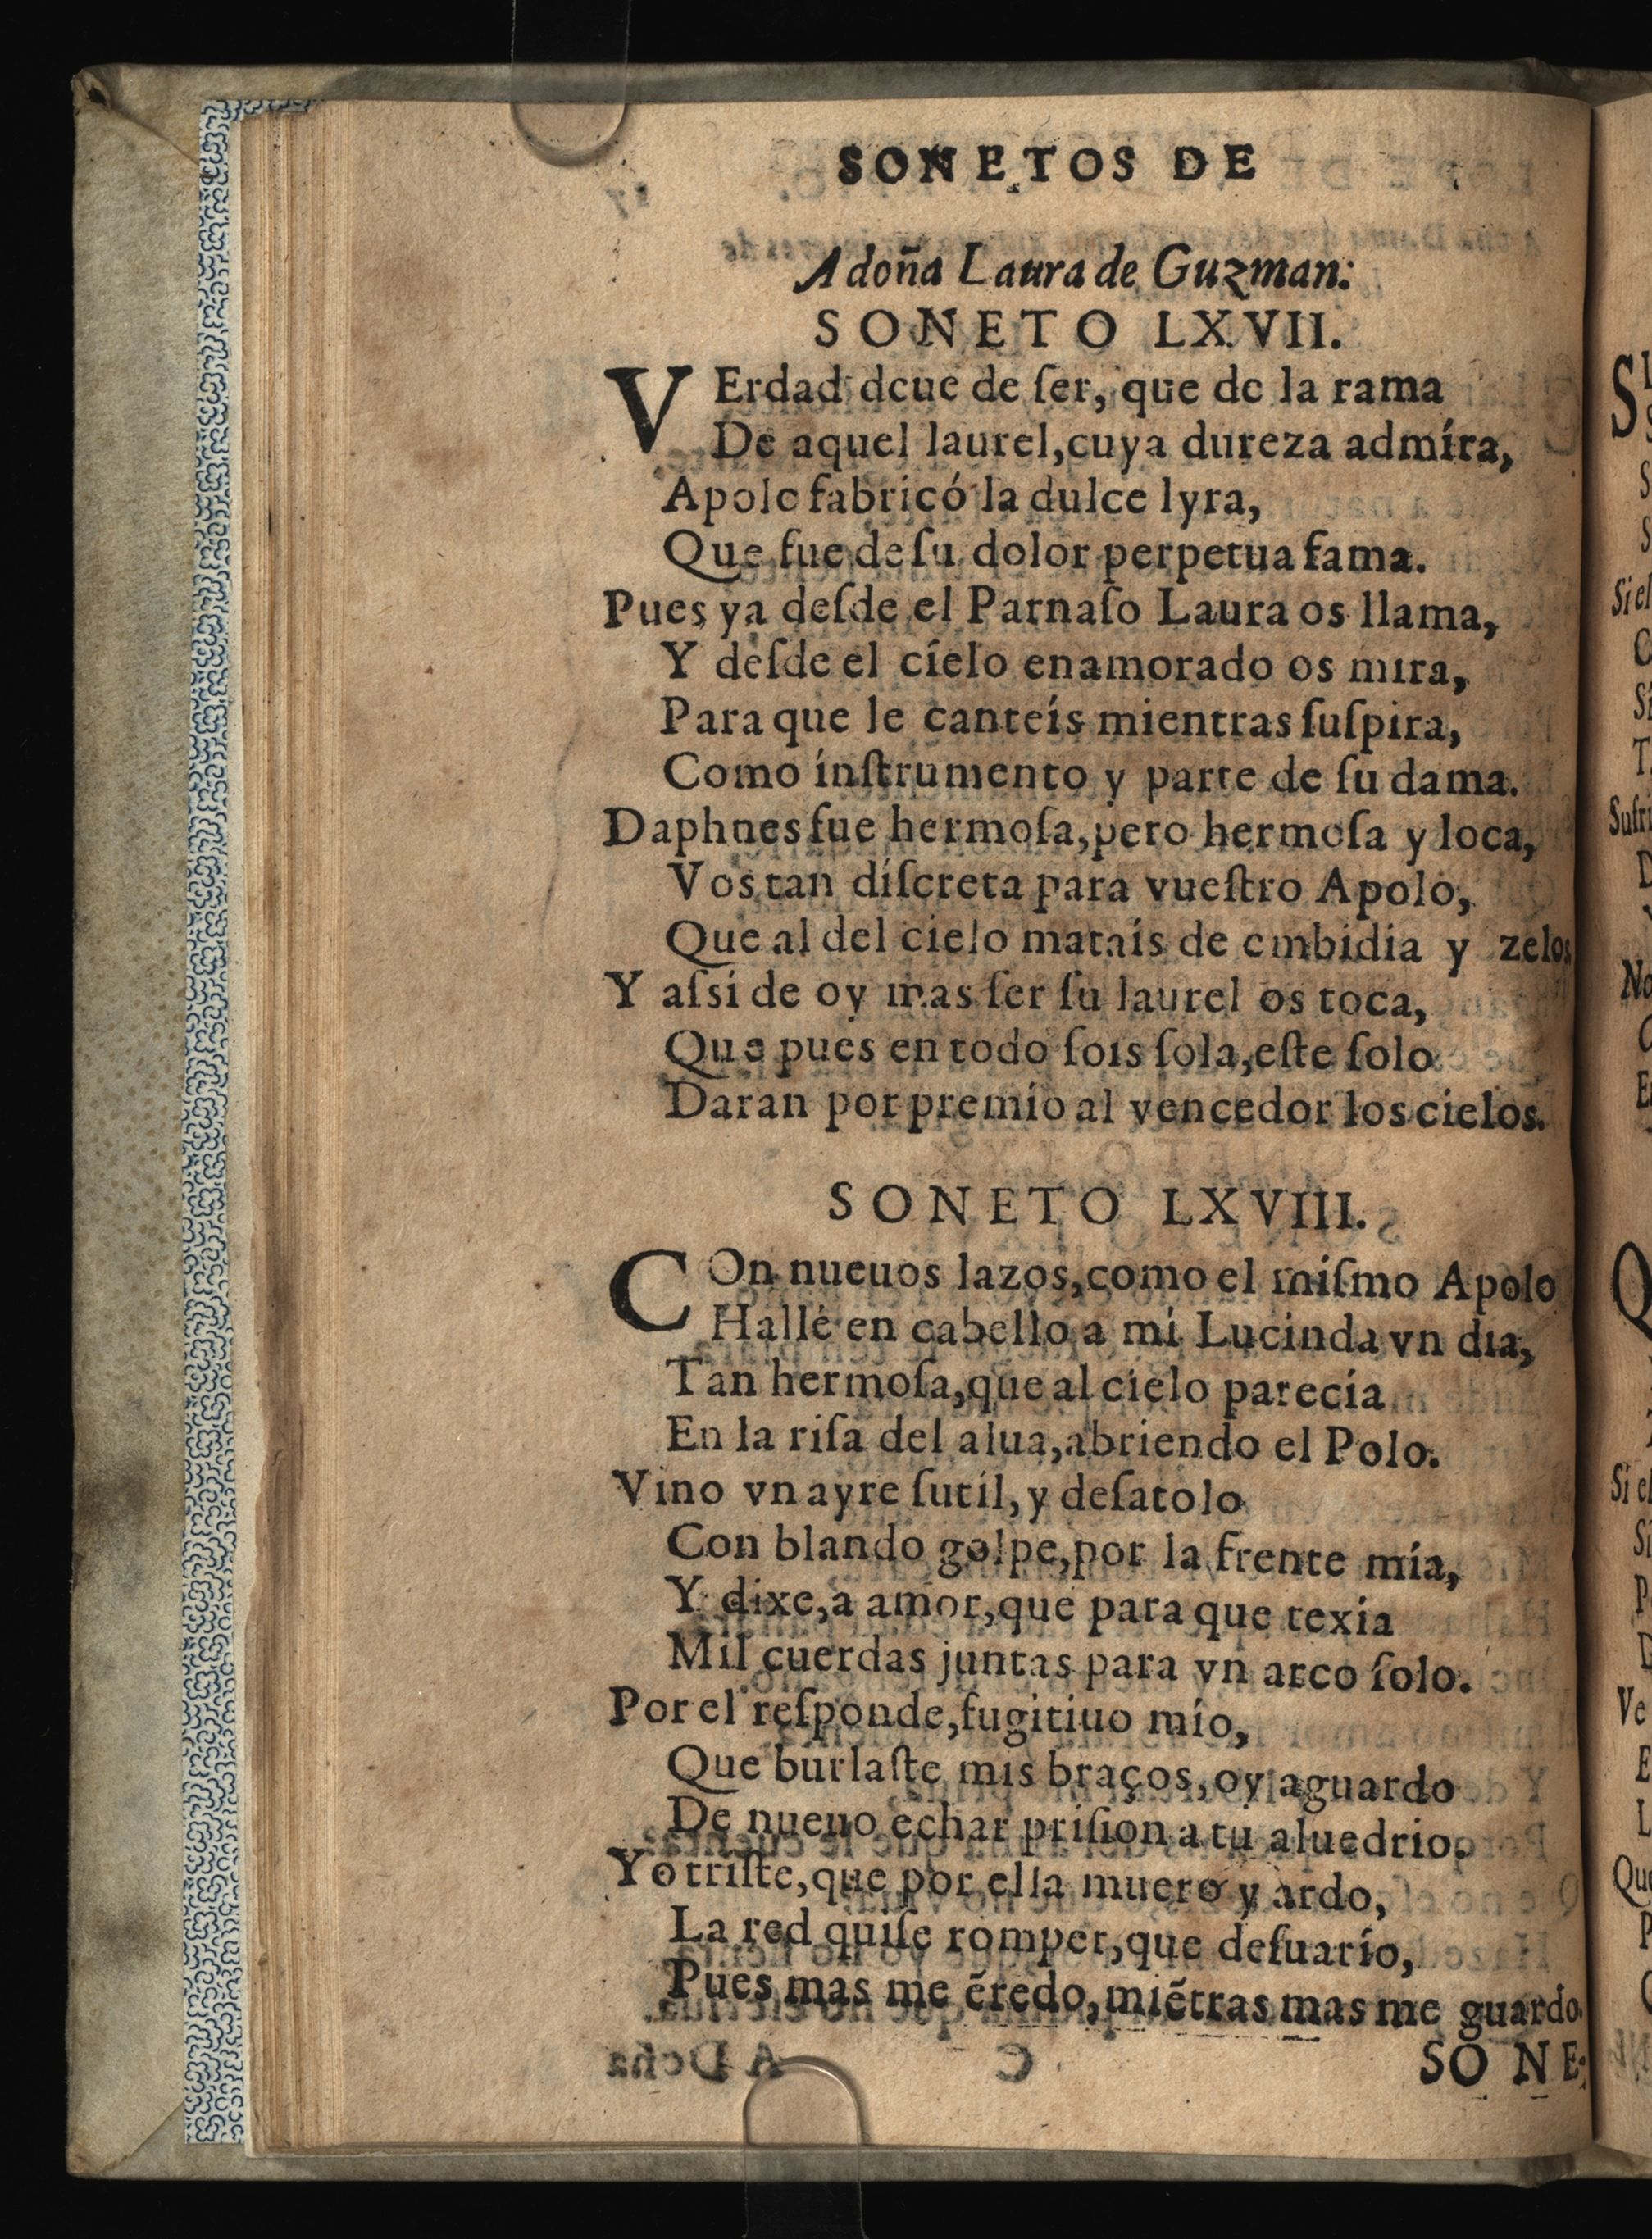 SONETOS DE
A doña Laura de Guzman:
SONETO LXVII.
VErdad deue de ſer, que de la rama
De aquel laurel,cuya dureza admíra,
Apolo fabricó la dulce lyra,
Que fue de ſu dolor perpetua fama.
Pues ya deſde el Parnaſo Laura os llama,
Y deſde el cíelo enamorado os mira,
Para que le canteís mientras ſuſpira,
Como ínſtrumento y parte de ſu dama.
Daphnes fue hermoſa,pero hermoſa y loca,
Vos tan díſcreta para vueſtro Apolo,
Que al del cielo mataís de embidia y zelos
Y aſsi de oy mas ſer ſu laurel os toca,
Que pues en todo ſois ſola,eſte ſolo
Daran por premio al vencedor los cielos.
SONETO LXVIII.
COn nueuos lazos,como el miſmo Apolo
Hallé en cabello a mi Lucinda vn dia,
Tan hermoſa,que al cielo parecía
En la riſa del alua,abriendo el Polo.
Vino vn ayre ſutíl,y deſatolo
Con blando golpe,por la frente mía,
Y dixe,a amor,que para que texía
Mil cuerdas juntas para vn arco ſolo.
Por el reſponde,fugitiuo mío,
Que burlaſte mis braços,oy aguardo
De nueuo echar príſion a tu aluedrio.
Yo triſte,que por ella muero y ardo,
La red quiſe romper,que deſuarío,
Pues mas me ēredo,miētras mas me guardo.
SONE-